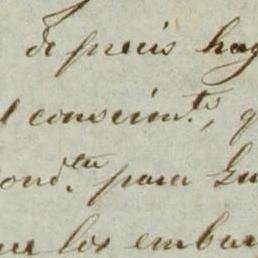 de precis hag
l conocim.ts, q
ond.ta para Gu
los embar